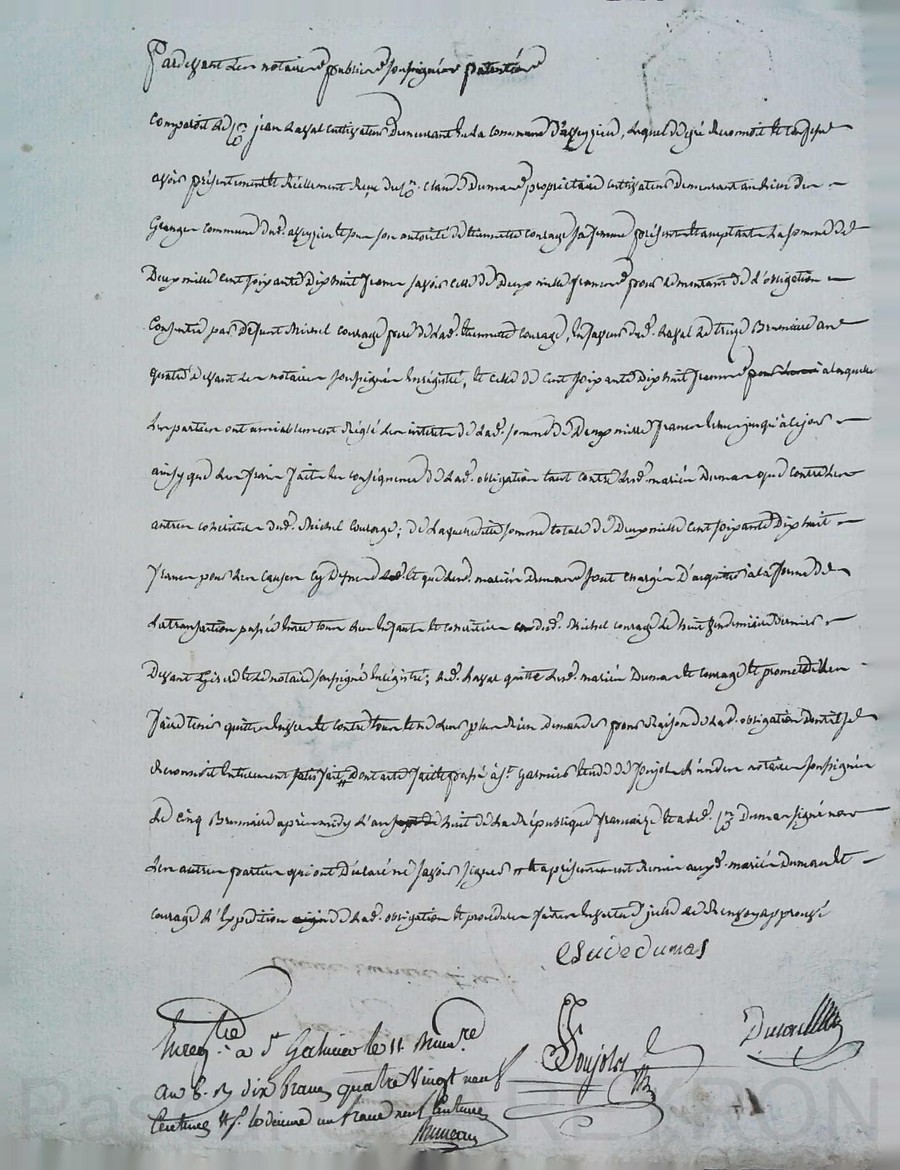 Pardevant Les notaires publics soussignés patentés
Comparoit le Cn jean Raval Cultivateur Demeurant en La Commune d'aveyzieu, Lequel de gré Reconnoit et Confesse
avoir présentement et Réellement Reçu du Cn Claude Dumas propriétaire Cultivateur Demeurant au Lieu des
Granges Commune dud. aveyzieu et par son autorité de Courage sa femme présente et acceptante La somme de
Deux mille Cent soixante Dix huit francs savoir Celle de Deux mille francs pour Le montant de L'obligation
Consentie par Defunt Michel Courage pere de Lad. Courage, en faveur dud. Raval Le treize Brumaire an
quatre Devant Les notaires soussignés Enregistré, et Celle de Cent soixante Dix huit francs à laquelle
Les parties ont amiablement Réglé Les interets de Lad. somme de Deux mille francs Echus jusqu'à Ce jour
ainsy que Les frais faits en Conséquence de Lad. obligation tant Contre Lesd. mariés Dumas que Contre Les
autres Cohéritiers dud. Michel Courage; de Laquelle somme totale de Deux mille Cent soixante Dix huit
francs pour Les Causes Cy Dessus et que Lesd. mariés Dumas sont Chargés D'acquitter à La forme de
La transaction passée Entre tous Les Enfants et Cohéritiers dud. Michel Courage Le huit Vendemiaire Dernier
Devant et Le notaire soussigné Enregistré; Led. Raval quitte Lesd. mariés Dumas et Courage et promet de Les
faire tenir quittes Envers et Contre tous et ne Leur plus Rien Demander pour Raison de Lad. obligation Dont il se
Reconnoit Entierement satisfait, Dont acte fait et passé à St Galmier Etude de Poujol L'un des notaires soussignés
Le Cinq Brumaire après midy L'an huit de La République française et a Led. Cn Dumas signé non
Les autres parties qui ont Déclaré ne savoir signer et a présentement Remis auxd. mariés Dumas et
Courage L'Expédition de Lad. obligation et procédures faites Ensuite
Claude dumas
Enregtré à St Galmier le 11 Brumre
an 8. R. dix francs quatre Vingt neuf
Centimes le décime un franc neuf Centimes
Poujolos